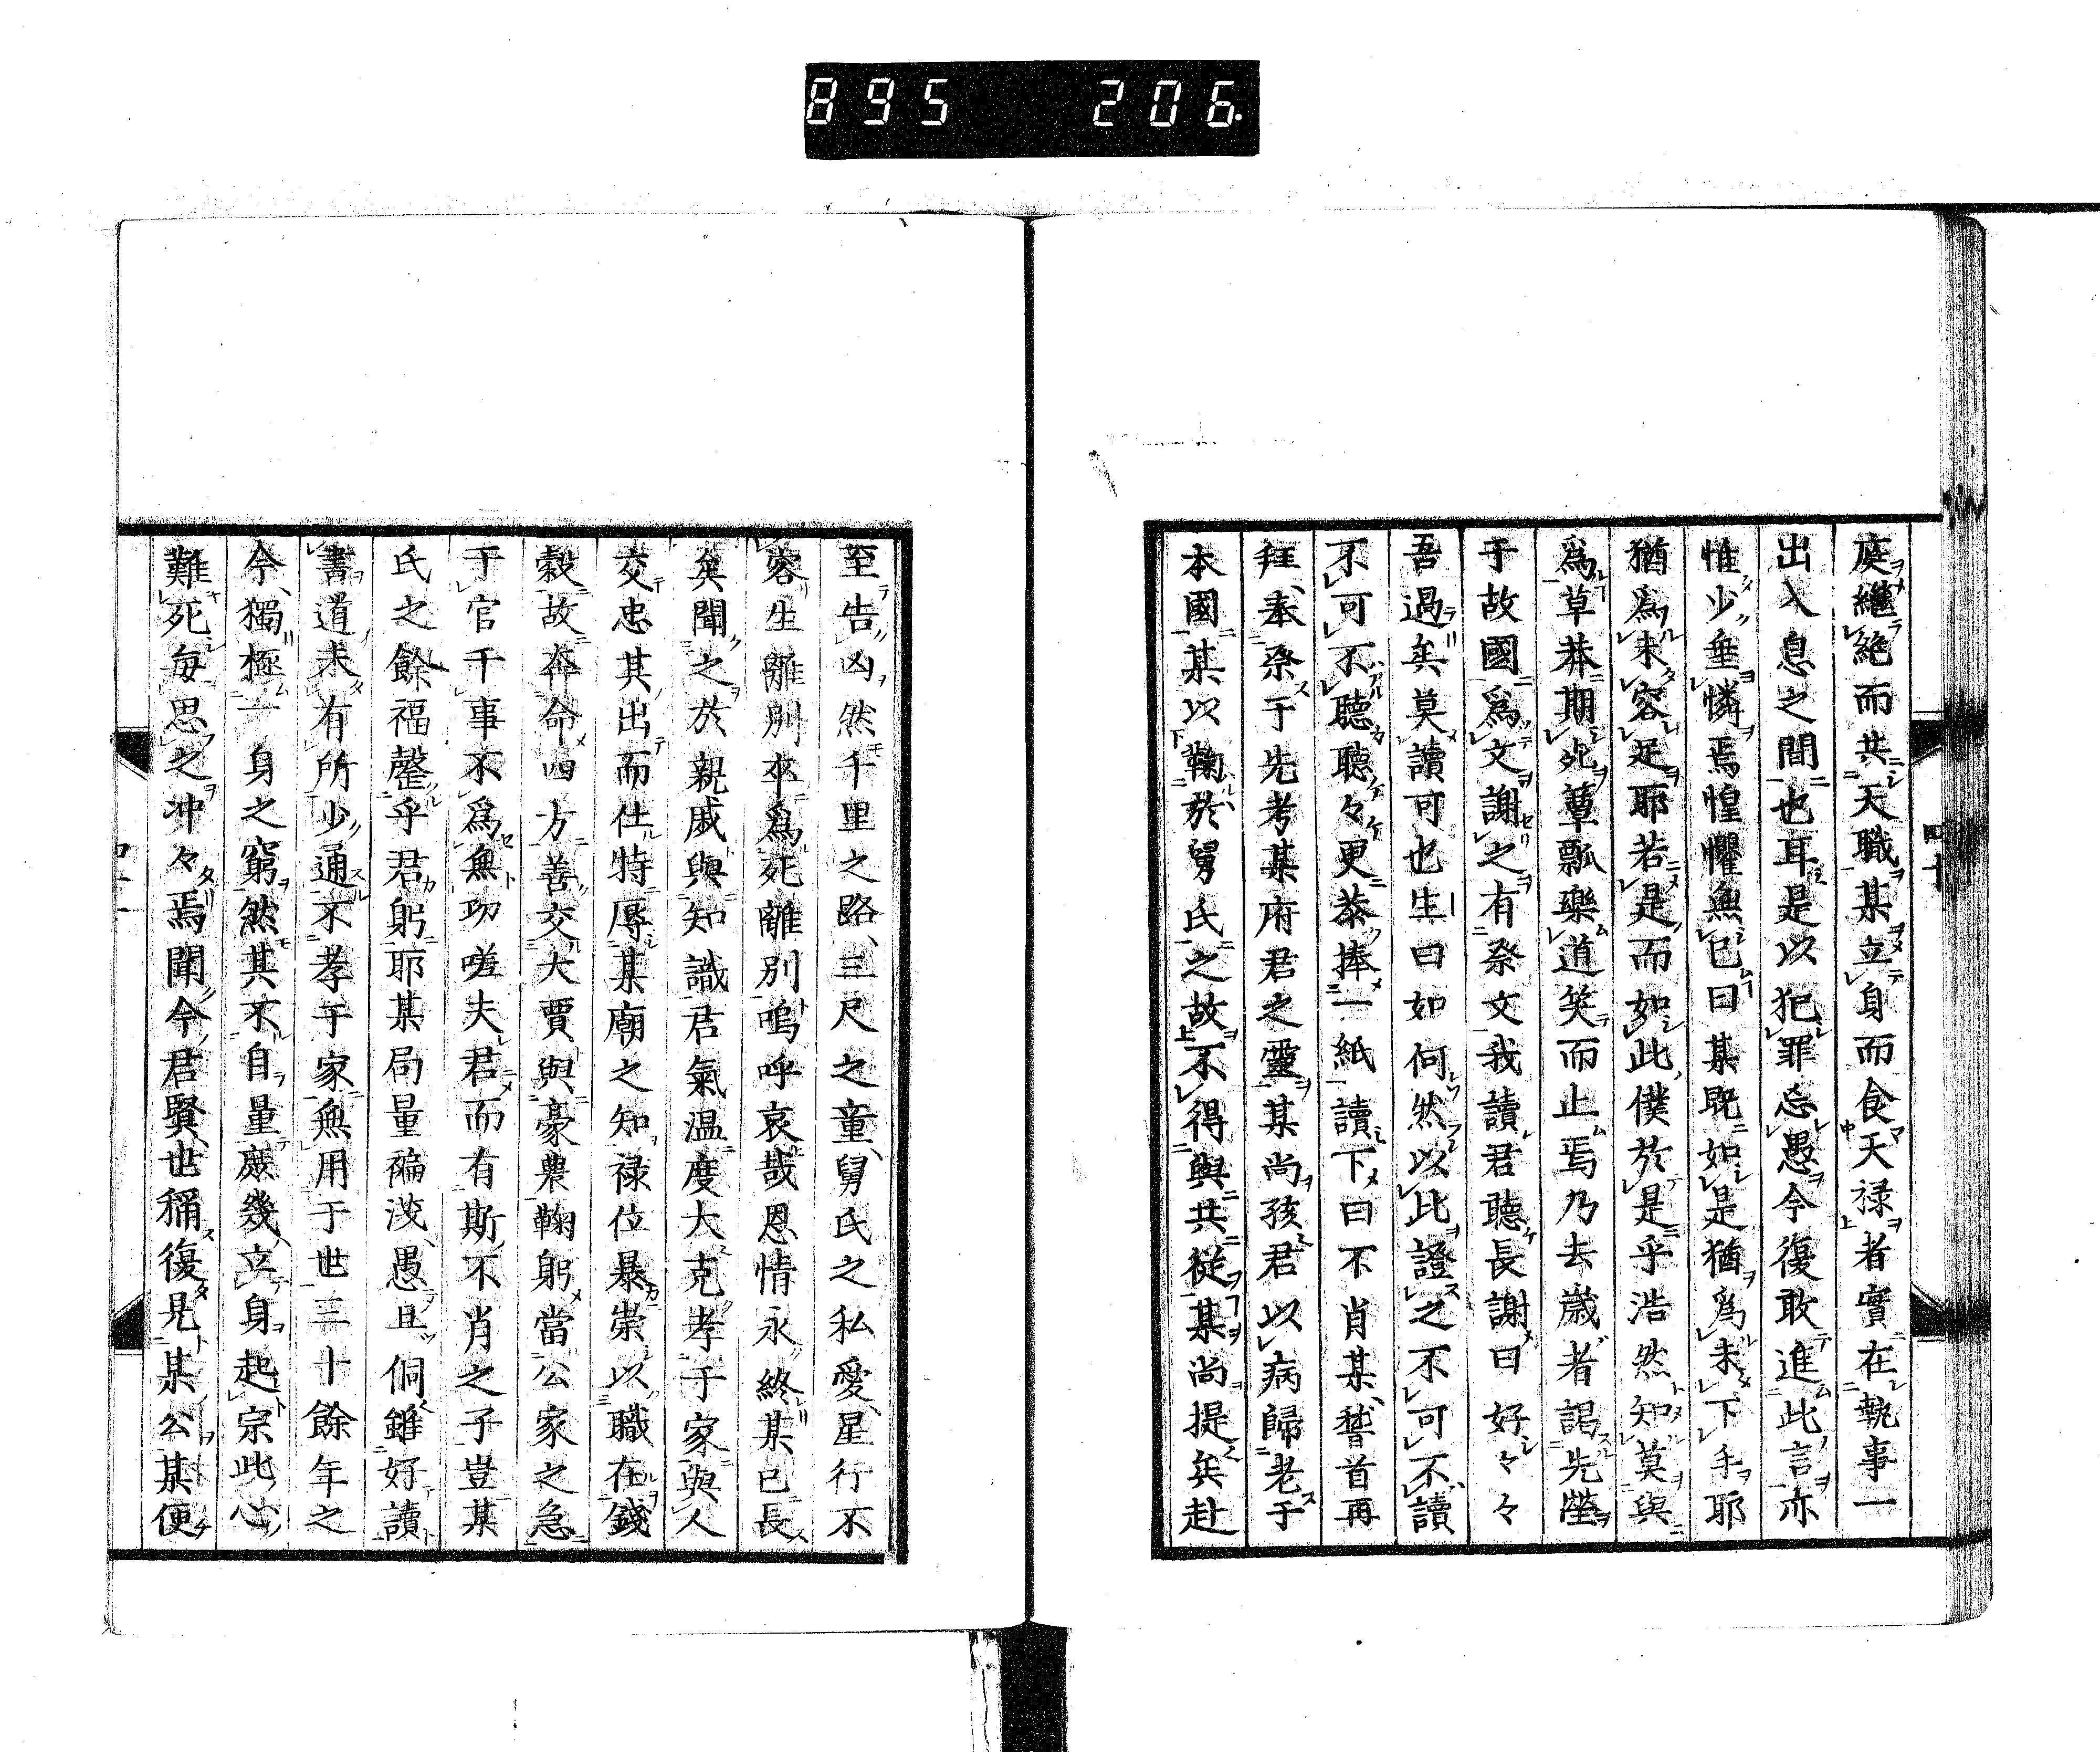 895 206.
庭繼絶而共天職某立身而食天祿者實在執事一
出入息之間也耳是以犯罪忘愚今復敢進此言亦
惟少垂憐焉惶懼無已曰某既如是猶爲未下手耶
猶爲未容足耶若是而如此僕於是乎浩然知莫與
爲草莽期死簞瓢樂道笑而止焉乃去歲者謁先塋
于故國爲文謝之有祭文我讀君聽長謝曰好々々
吾過矣莫讀可也生曰如何然以此證之不可不讀
不可不聽聽々更恭捧一紙讀下曰不肖某稽首再
拜奉祭于先考某府君之靈某尚孩君以病歸老于
本國某以鞠於舅氏之故不得與共從某尚提兵赴
四十
至告凶然千里之路三尺之童舅氏之私愛星行不
容生離別卒爲死離別嗚呼哀哉恩情永終某已長
矣聞之於親戚與知識君氣温度大克孝于家與人
交忠其出而仕特辱某廟之知祿位暴崇以職在錢
穀故奔命四方善交大賈與豪農鞠躬當公家之急
于官干事不爲無功嗟夫君而有斯不肖之子豈某
氏之餘福罄乎君躬耶某局量褊淺愚且侗雖好讀
書道未有所少通不孝于家無用于世三十餘年之
今獨極一身之窮然其不自量庶幾立身起宗此心
難死每思之冲々焉聞今君賢世稱復見某公某便